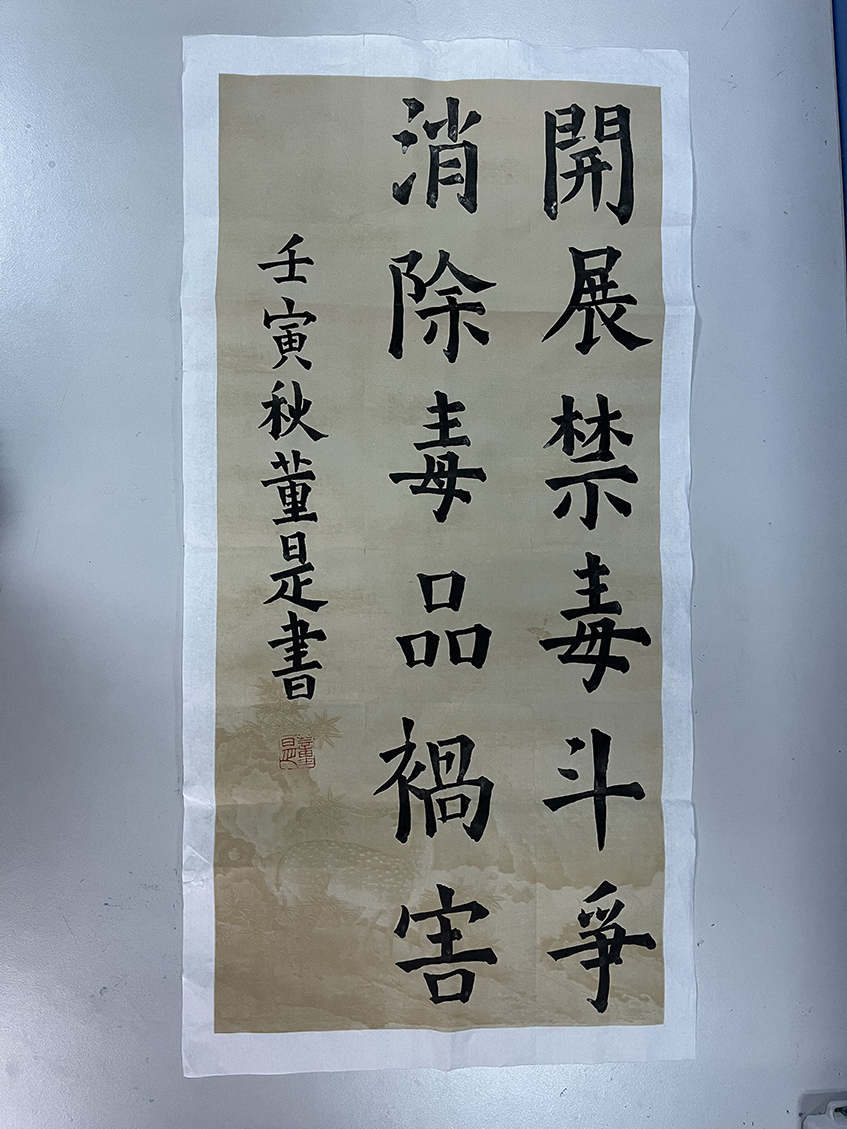 開展禁毒斗爭
消除毒品禍害
壬寅秋董是書
董是